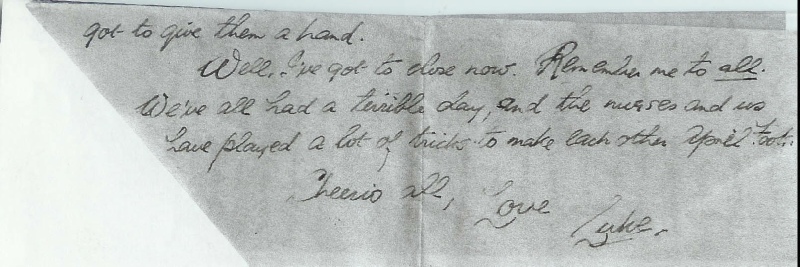 got to give them a hand.
Well, I've got to close now. Remember me to all.
We've all had a terrible day, and the nurses and us
have played a lot of tricks to make each other April Fools.
Cheerio all, Love Luke.